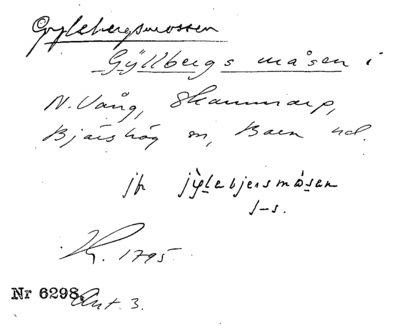 Gyllebergsmossen
Gÿllbergs måsen i
N. Vång, Skammarp,
Bjäshög m, Baen ud.
jfr jÿlebjersmåsen
1-s.
Kr. 1795.
Nr 6298. Ant. 3.